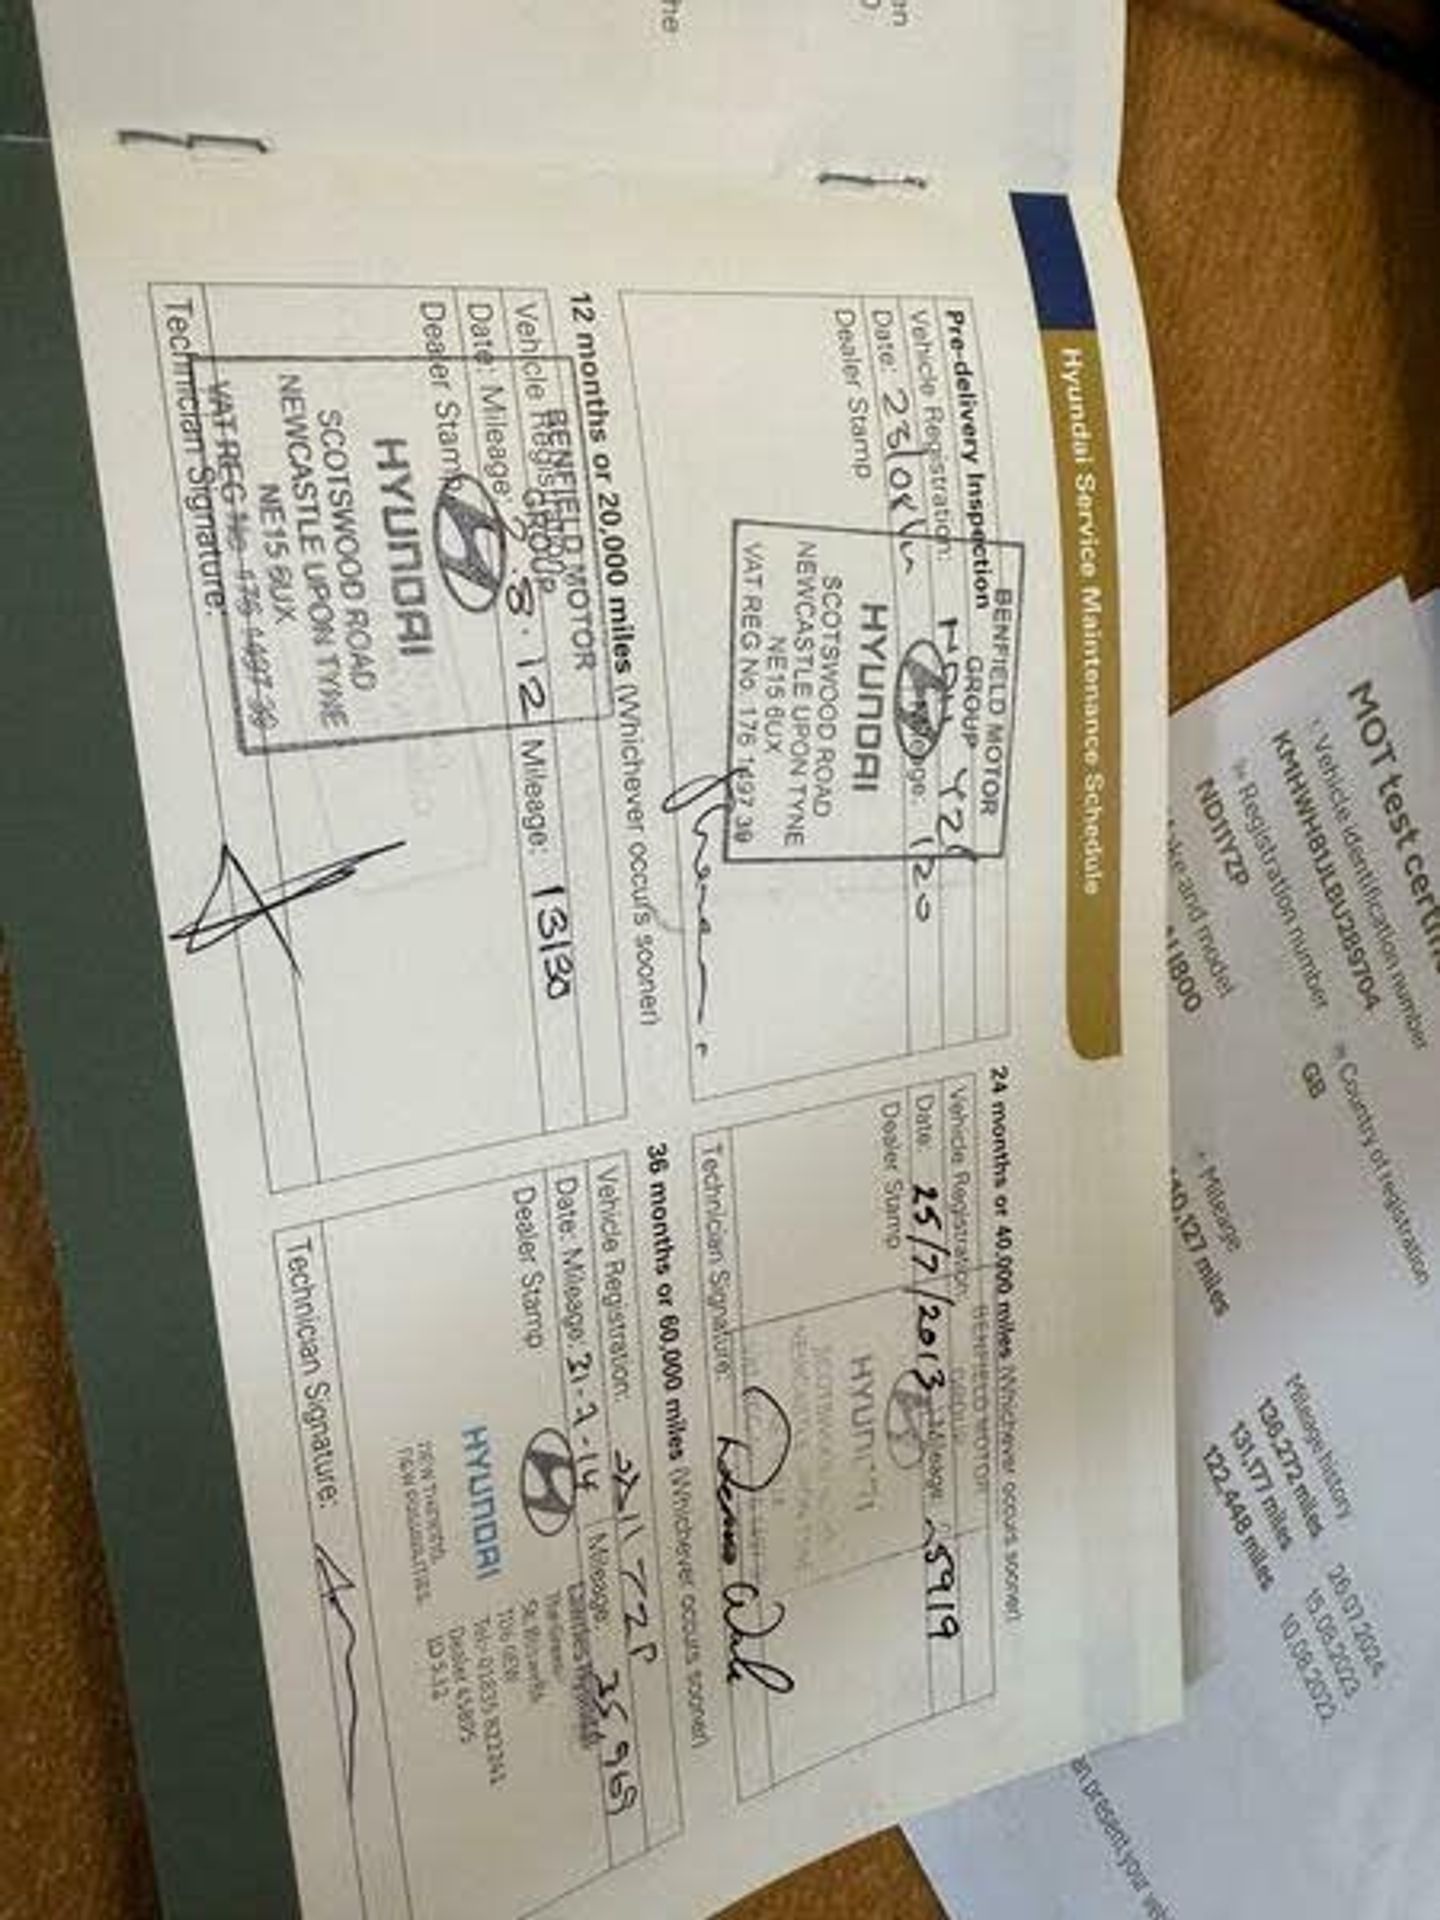 Hyundai Service Maintenance Schedule
Pre-delivery Inspection
Vehicle Registration:
Date: 23/08/11 Mileage: 120
Dealer Stamp
BENFIELD MOTOR
GROUP
HYUNDAI
SCOTSWOOD ROAD
NEWCASTLE UPON TYNE
NE15 6UX
VAT REG No. 176 1497 39
12 months or 20,000 miles (Whichever occurs sooner)
Vehicle Registration:
Date: Mileage: 8.12 Mileage: 13130
Dealer Stamp
BENFIELD MOTOR
GROUP
HYUNDAI
SCOTSWOOD ROAD
NEWCASTLE UPON TYNE
NE15 6UX
VAT REG No 176 1497 39
Technician Signature:
24 months or 40,000 miles (Whichever occurs sooner)
Vehicle Registration:
BENFIELD MOTOR
GROUP
Date: 25/7/2013 Mileage: 5919
Dealer Stamp
HYUNDAI
Technician Signature:
36 months or 60,000 miles (Whichever occurs sooner)
Vehicle Registration: 11 YZP
Date: Mileage: 31-7-14 Mileage: 35,969
Dealer Stamp
HYUNDAI
NEW THINKING.
NEW POSSIBILITIES.
Tel: 01235 822241
Technician Signature:
MOT test
Vehicle identification number
KMHWH81JLBU289704
Registration number
ND11YZP
Country of registration
GB
and model
I1800
Mileage
40,127 miles
Mileage history
136,272 miles 20.07.2024
131,177 miles 15.06.2023
122,448 miles 10.08.2022
an present your
he